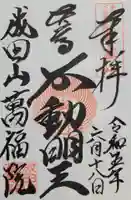 奉拝
令和五年
二月十八日
不動明王
成田山萬福院